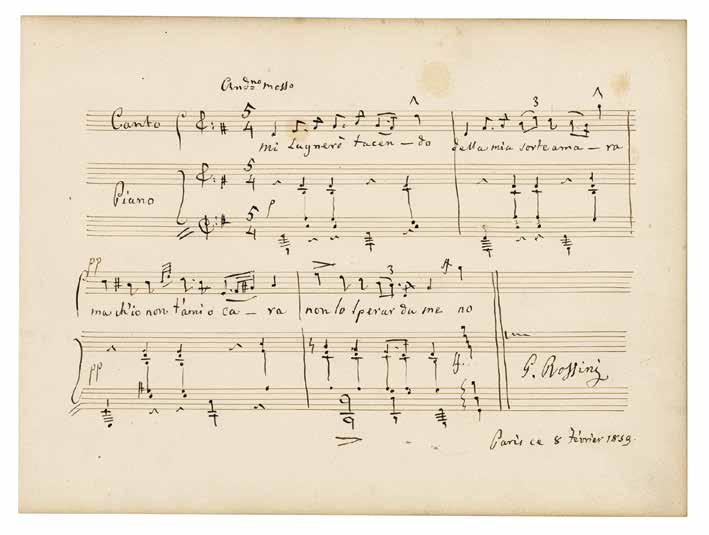 And.no mosso
Canto 5 4 3
mi lagnerò tacen - do della mia sorte ama - ra
Piano 5 4 p
5 4
pp 3
ma ch'io non t'ami o ca - ra non lo sperar da me no
pp
G. Rossini
Paris ce 8 Février 1859.